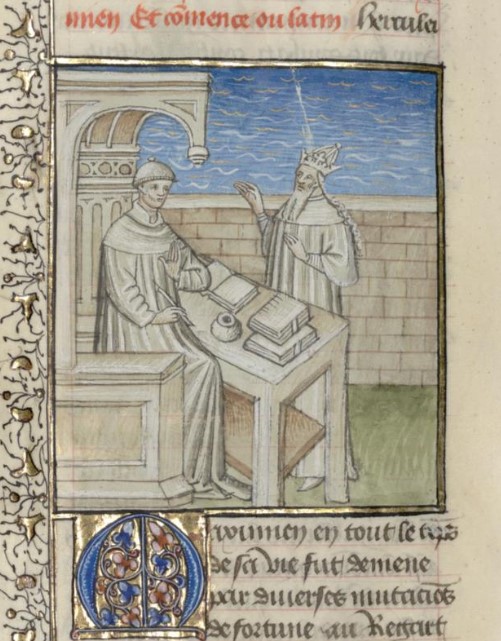 mien Et cōmence ou latin Herculei
Maximien en tout le tēps
de sa vie fut demene
par diuerses mutaciōs
de fortune au Regart